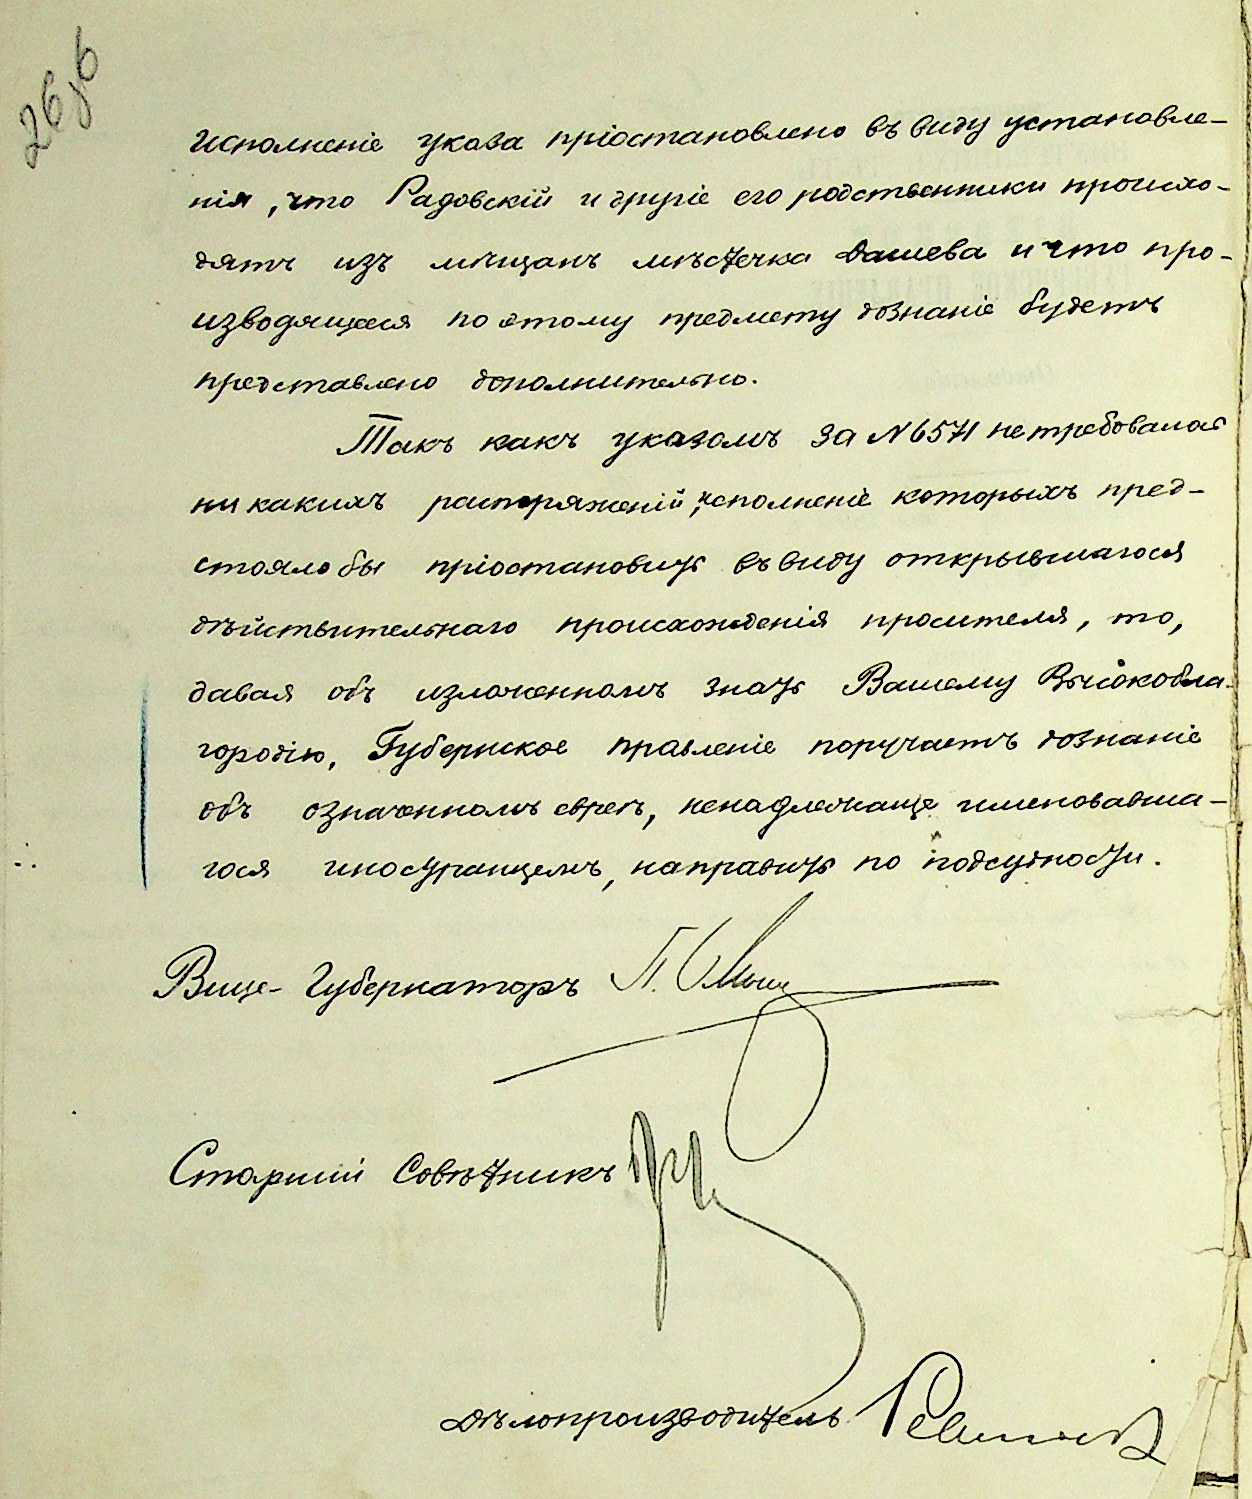 исполненіе указа пріостановлено въ виду установле-
нія, что Радовскій и другіе его родственники происхо-
дятъ изъ мѣщанъ мѣстечка Дашева и что про-
изводящееся по этому предмету дознаніе будетъ
представлено дополнительно.
Такъ какъ указомъ за № 6571 не требовалось
ни какихъ распоряженій, исполненіе которыхъ пред-
стояло бы пріостановить въ виду открывшагося
дѣйствительнаго происхожденія просителя, то,
давая объ изложенномъ знать Вашему Высокобла-
городію, Губернское правленіе поручаетъ дознаніе
объ означенномъ евреѣ, ненадлежаще именовавша-
гося иностранцемъ, направить по подсудности.
Вице-Губернаторъ П.
Старшій Совѣтникъ
Дѣлопроизводитель